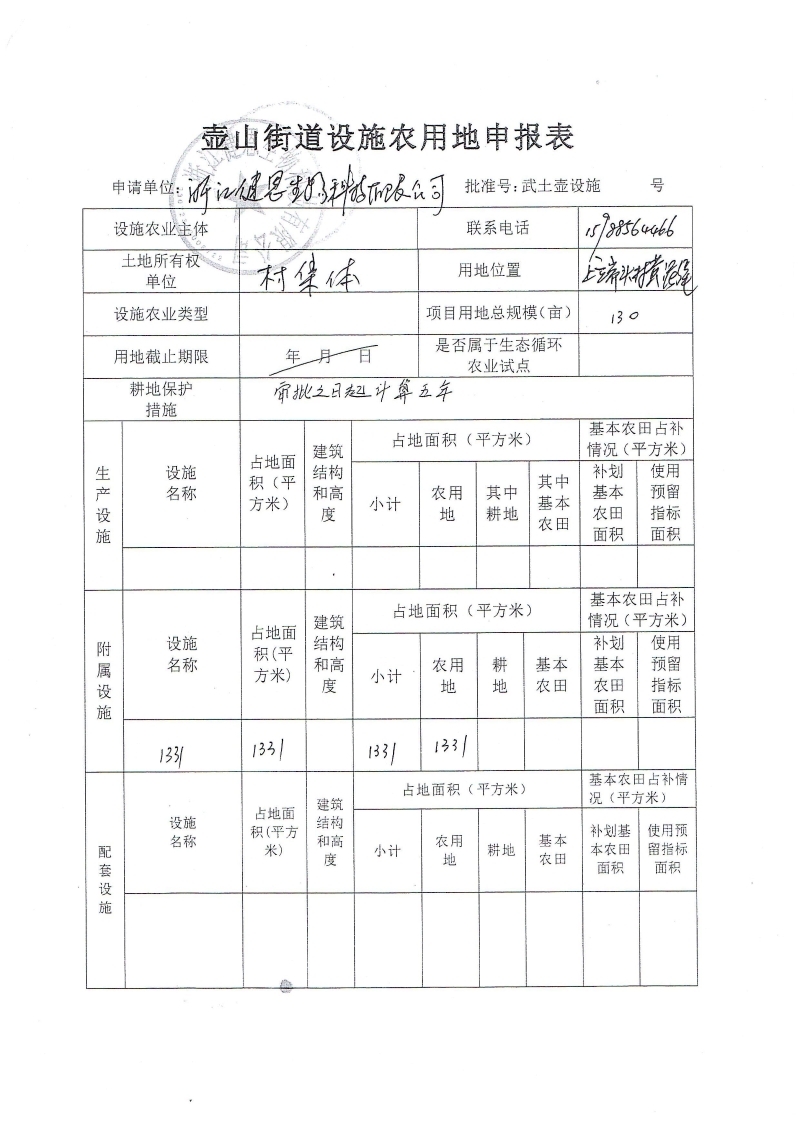 壶山街道设施农用地申报表
申请单位：浙江健恩生物科技有限公司 批准号：武土壶设施 号
设施农业主体 联系电话 15988564466
土地所有权单位 村集体 用地位置
设施农业类型 项目用地总规模（亩） 130
用地截止期限 年 月 日 是否属于生态循环农业试点
耕地保护措施 审批之日起计算五年
生产设施 设施名称 占地面积（平方米） 建筑结构和高度 占地面积（平方米） 基本农田占补情况（平方米）
小计 农用地 其中耕地 其中基本农田 补划基本农田面积 使用预留指标面积
附属设施 设施名称 占地面积(平方米) 建筑结构和高度 占地面积（平方米） 基本农田占补情况（平方米）
小计 农用地 耕地 基本农田 补划基本农田面积 使用预留指标面积
1331 1331 1331 1331
配套设施 设施名称 占地面积(平方米) 建筑结构和高度 占地面积（平方米） 基本农田占补情况（平方米）
小计 农用地 耕地 基本农田 补划基本农田面积 使用预留指标面积